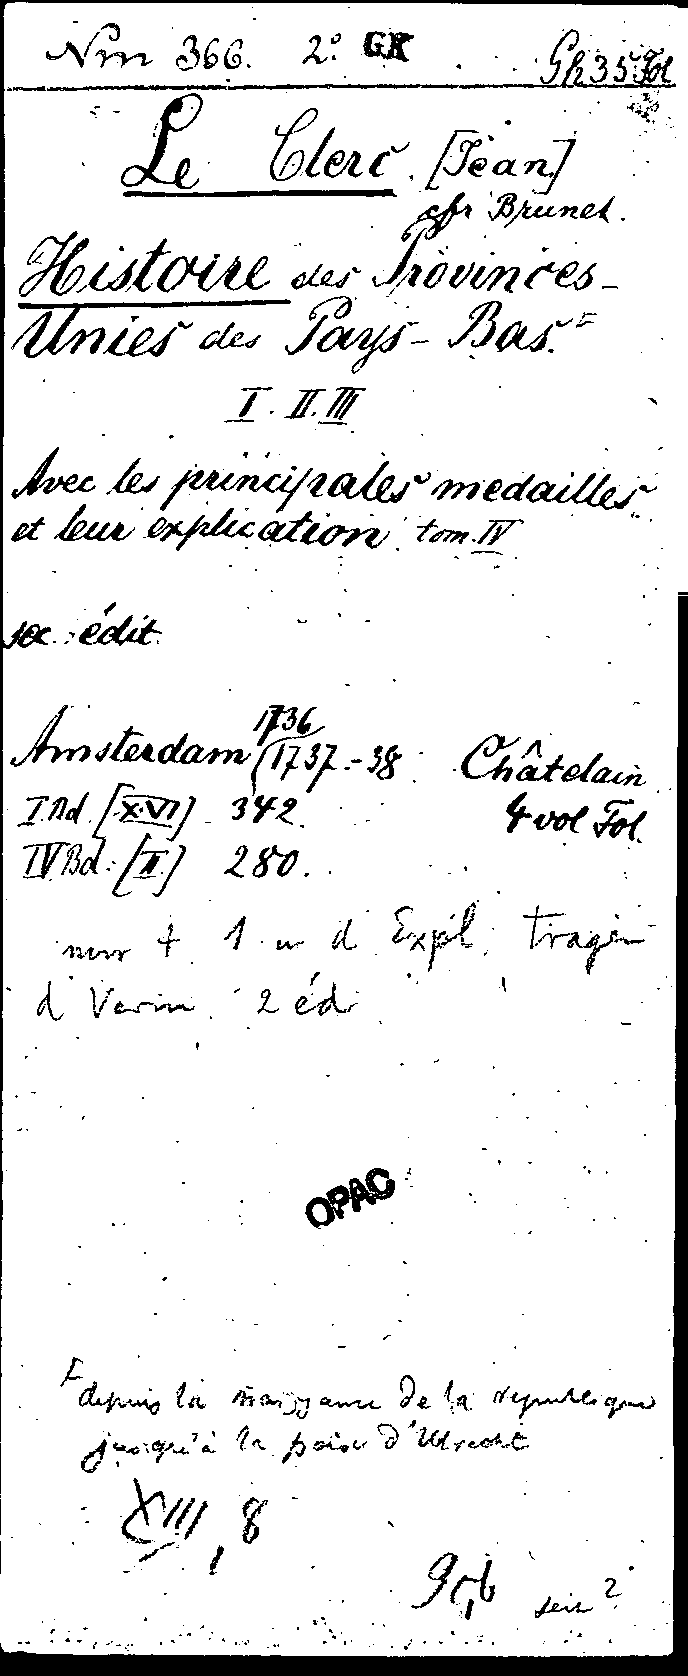 Nm 366. 2° GK Gh 35 Fol
Le Clerc. [Jean]
cfr Brunet.
Histoire des Provinces-
Unies des Pays-Bas.
I. II. III
Avec les principales medailles
et leur explication tom. IV
sec. édit.
1736
Amsterdam (1737.-38 Châtelain
I Bd. [XVI] 342. 4 vol Fol.
IV Bd. [II] 280.
nur 1 u d Expl. tragen
d Verm 2 éd
OPAC
depuis la naissance de la republique
jusqu'à la paix d'Utrecht
XIII, 8
2